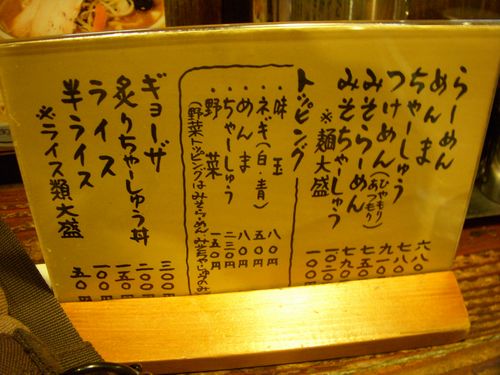 らーめん 六八〇
めんま 七八〇
ちゃーしゅう
つけめん(ひやもり あつもり)
みそらーめん 七九〇
みそちゃーしゅう 一〇二〇
※麺大盛 一〇〇
トッピング
・味玉 八〇円
・ネギ(白・青) 五〇円
・めんま 八〇円
・ちゃーしゅう 二三〇円
・野菜 一五〇円
(野菜トッピングはみそらーめんみそちゃーしゅうのみ
ギョーザ 三〇〇円
炙りちゃーしゅう丼 二〇〇円
ライス 一五〇円
半ライス 一〇〇円
※ライス類大盛 五〇円